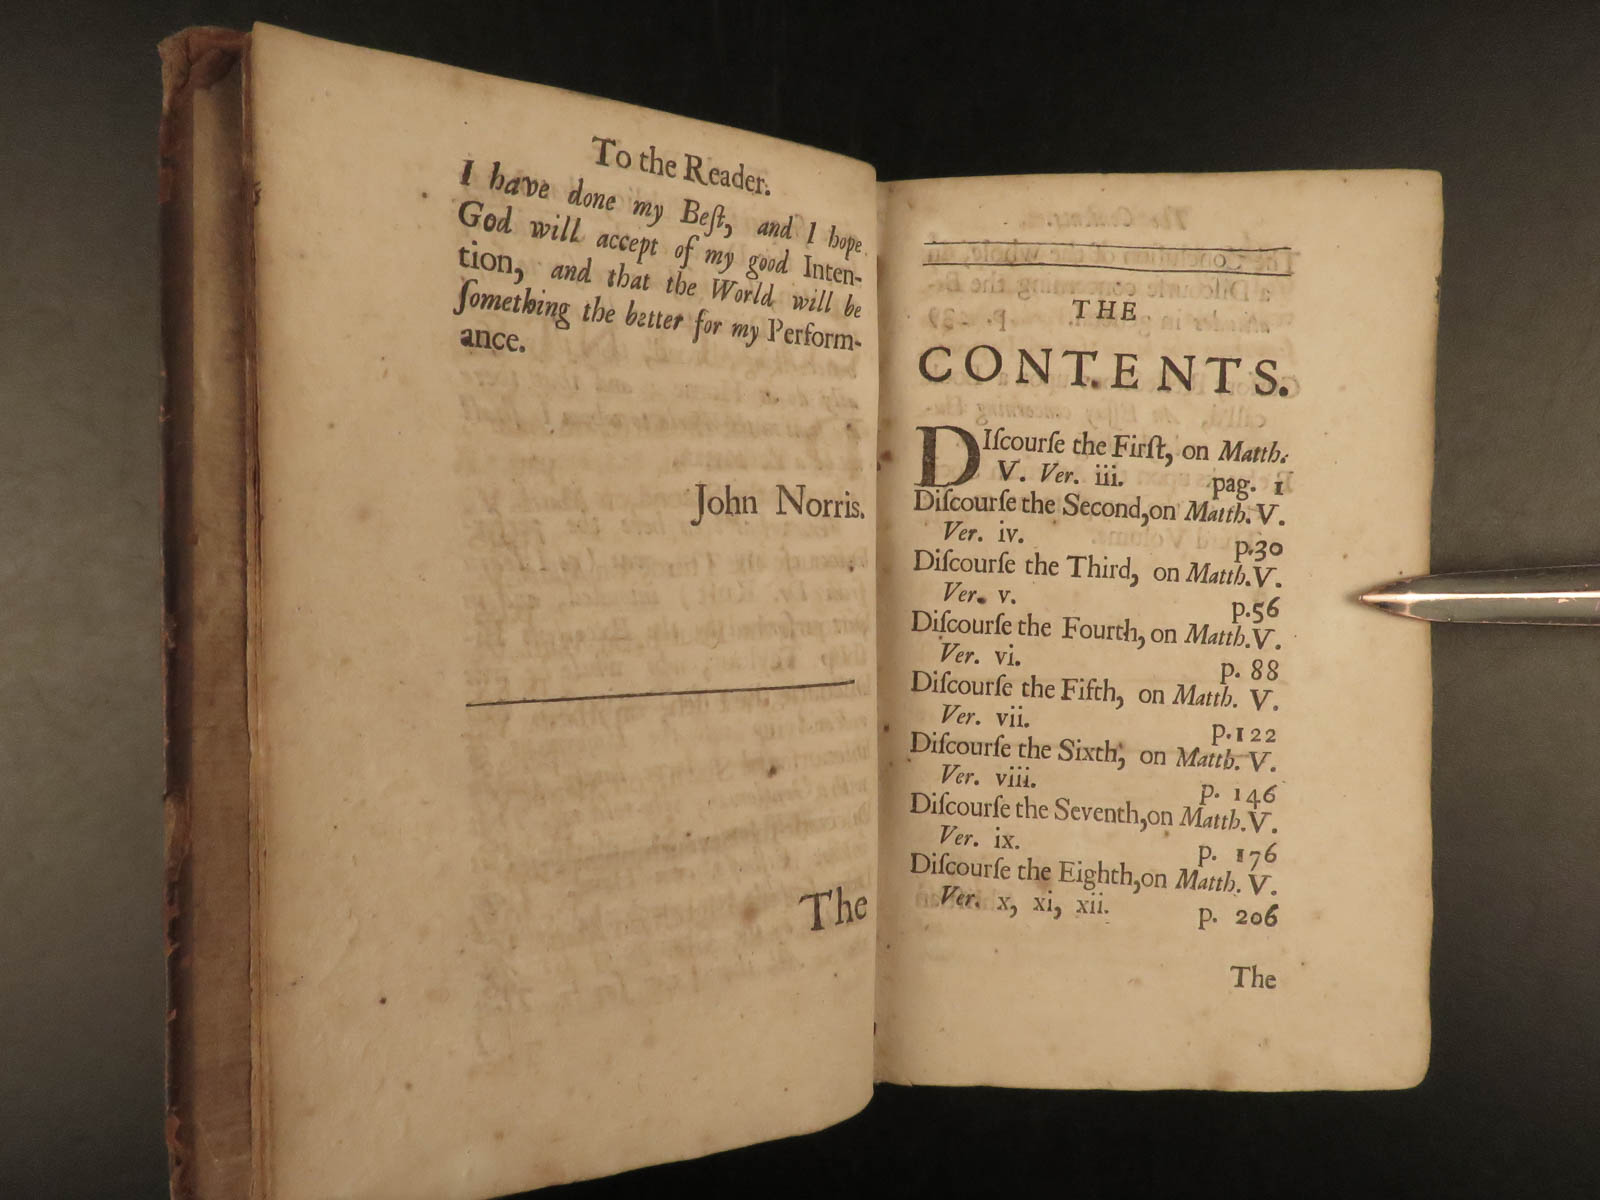 To the Reader.
I have done my Beſt, and I hope
God will accept of my good Inten-
tion, and that the World will be
ſomething the better for my Perform-
ance.
John Norris.
The
THE
CONTENTS.
DIſcourſe the Firſt, on Matth.
V. Ver. iii. pag. 1
Diſcourſe the Second, on Matth. V.
Ver. iv. p. 30
Diſcourſe the Third, on Matth. V.
Ver. v. p. 56
Diſcourſe the Fourth, on Matth. V.
Ver. vi. p. 88
Diſcourſe the Fifth, on Matth. V.
Ver. vii. p. 122
Diſcourſe the Sixth, on Matth. V.
Ver. viii. p. 146
Diſcourſe the Seventh, on Matth. V.
Ver. ix. p. 176
Diſcourſe the Eighth, on Matth. V.
Ver. x, xi, xii. p. 206
The